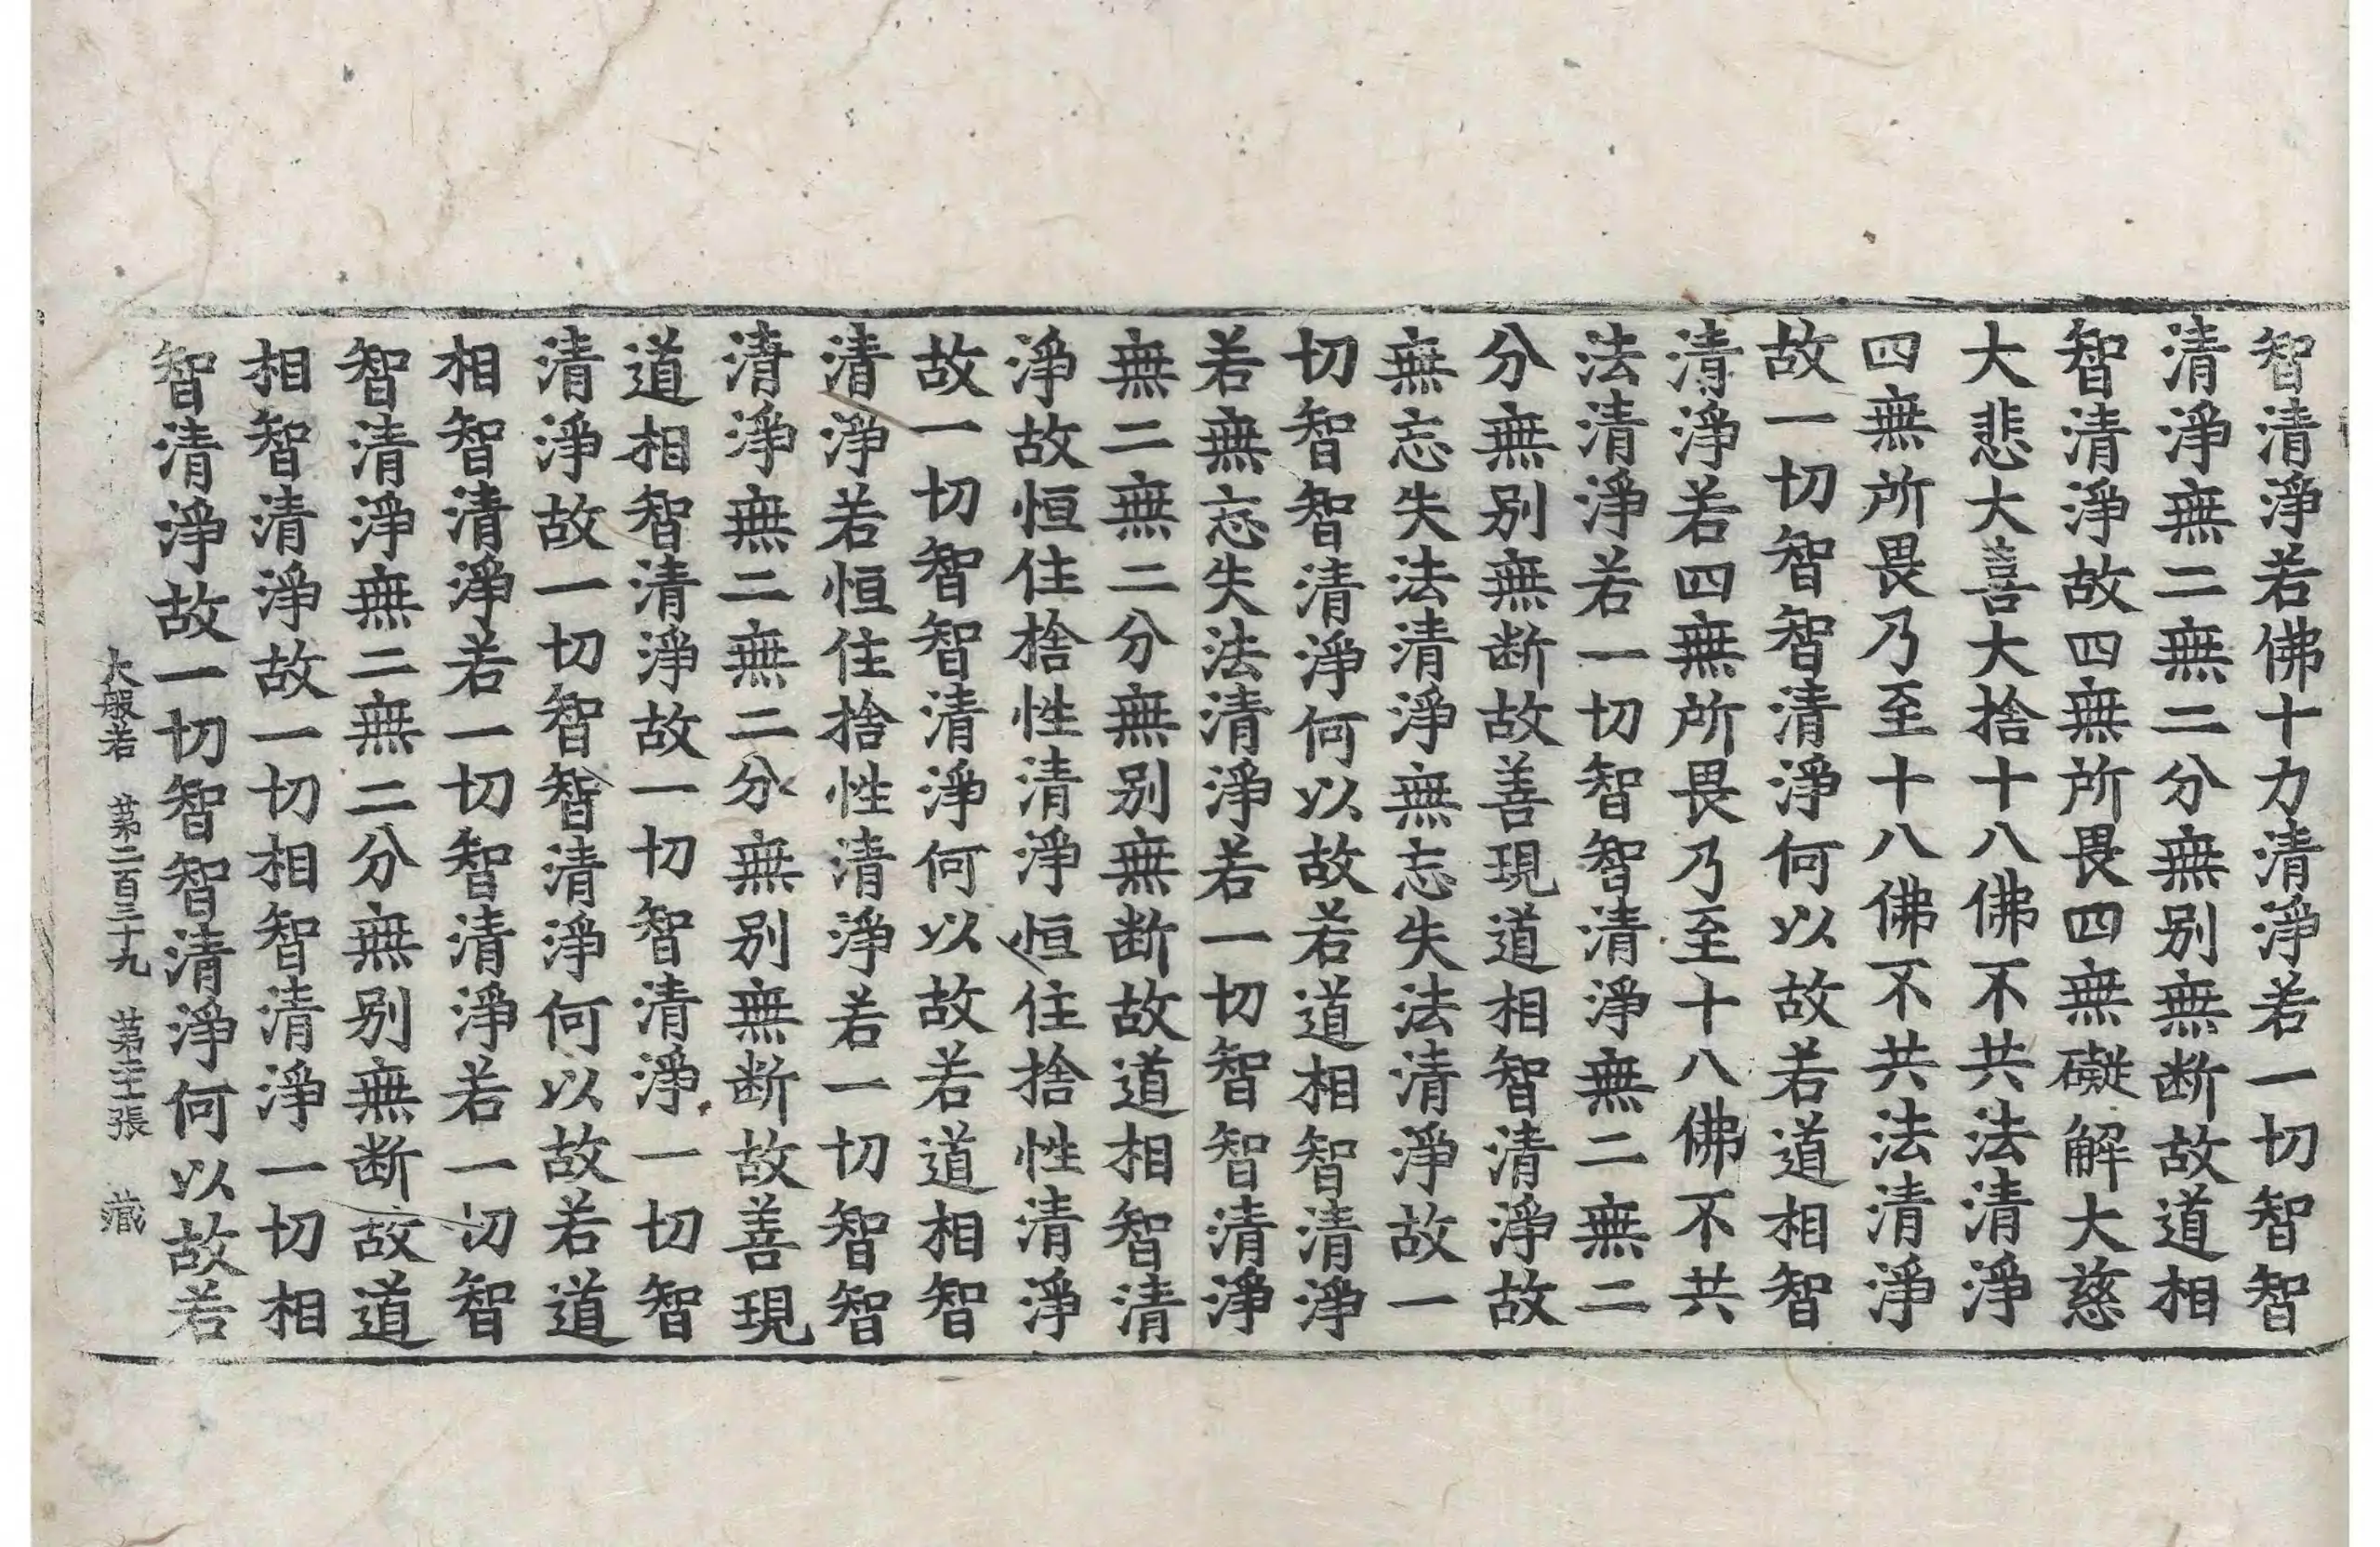 智清淨若佛十力清淨若一切智智
清淨無二無二分無別無断故道相
智清淨故四無所畏四無礙解大慈
大悲大喜大捨十八佛不共法清淨
四無所畏乃至十八佛不共法清淨
故一切智智清淨何以故若道相智
清淨若四無所畏乃至十八佛不共
法清淨若一切智智清淨無二無二
分無別無断故善現道相智清淨故
無忘失法清淨無忘失法清淨故一
切智智清淨何以故若道相智清淨
若無忘失法清淨若一切智智清淨
無二無二分無別無断故道相智清
淨故恒住捨性清淨恒住捨性清淨
故一切智智清淨何以故若道相智
清淨若恒住捨性清淨若一切智智
清淨無二無二分無別無断故善現
道相智清淨故一切智清淨一切智
清淨故一切智智清淨何以故若道
相智清淨若一切智清淨若一切智
智清淨無二無二分無別無断故道
相智清淨故一切相智清淨一切相
智清淨故一切智智清淨何以故若
大般若 第二百三十九 第張 藏